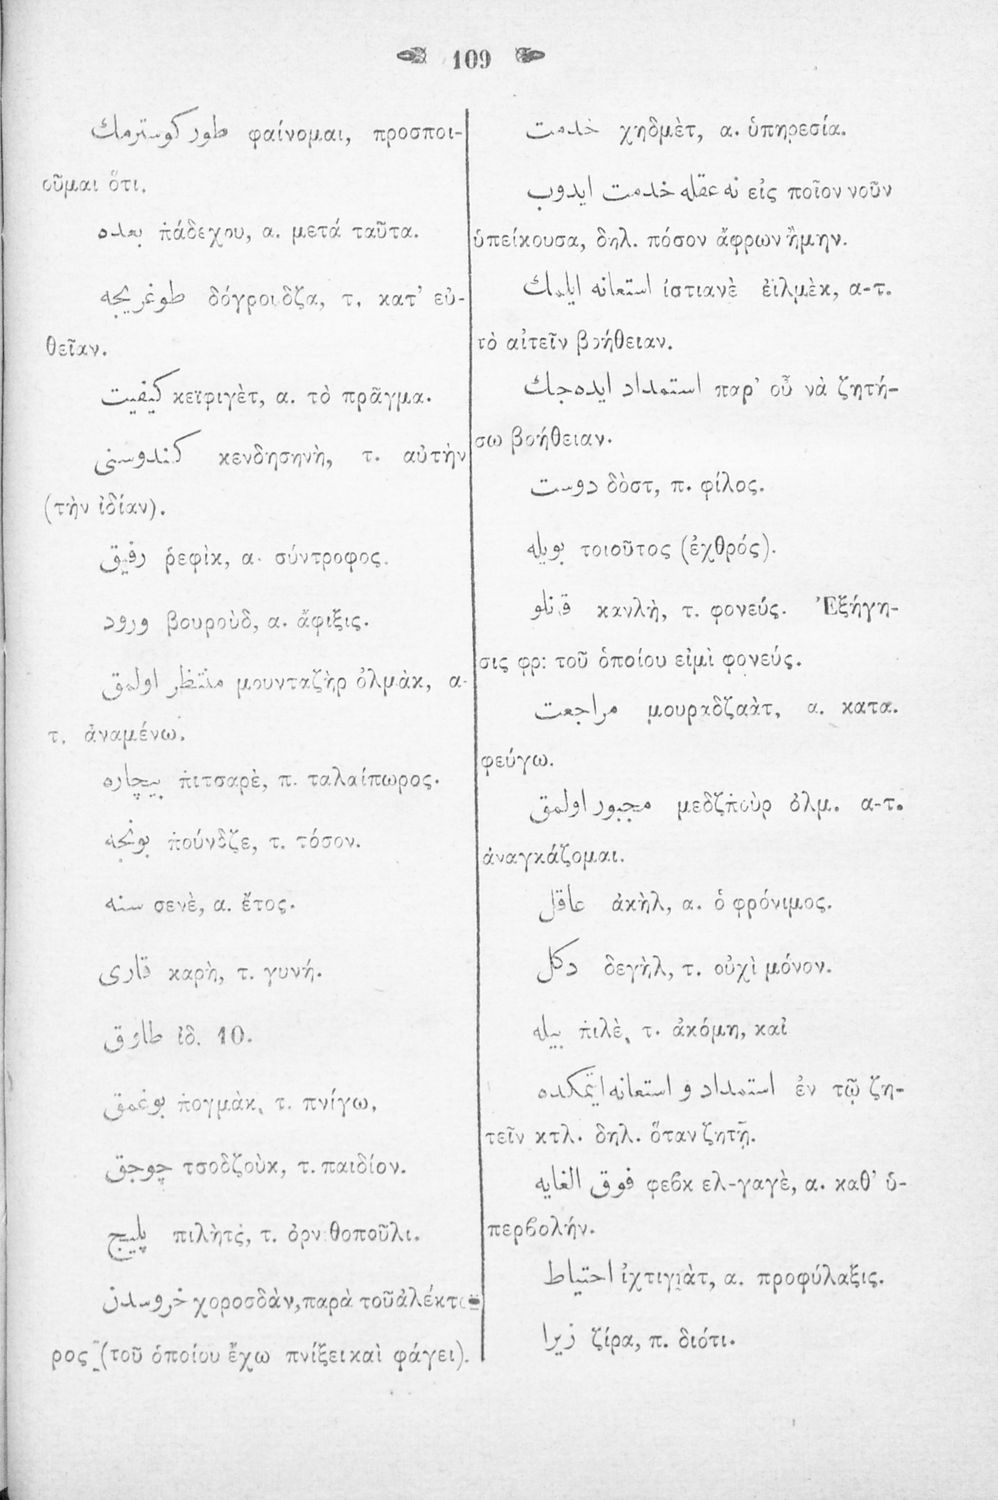 109
طور كوسترمك φαίνομαι, προσποι-
οῦμαι ὅτι.
بعده πάδεχου, α. μετά ταῦτα.
طوغريجه δόγρουδζα, τ. κατ’ εὐ-
θεῖαν.
كيفيت κεϊφιγὲτ, α. τὸ πρᾶγμα.
كندوسنى κενδησηνὴ, τ. αὐτὴν
(τὴν ἰδίαν).
رفيق ῥεφὶκ, α. σύντροφος.
ورود βουροὺδ, α. ἄφιξις.
منتظر اولمق μουνταζὴρ ὀλμὰκ, α-
τ. ἀναμένω.
بيچاره πιτσαρὲ, π. ταλαίπωρος.
بونجه πούνδζε, τ. τόσον.
سنه σενὲ, α. ἔτος.
قارى καρὴ, τ. γυνή.
طارق ἰδ. 10.
بوغمق πογμὰκ, τ. πνίγω,
چوجق τσοδζοὺκ, τ. παιδίον.
پليج πιλὴτς, τ. ὀρνιθοποῦλι.
خروسدن χοροσδὰν, παρὰ τοῦ ἀλέκτο-
ρος (τοῦ ὁποίου ἔχω πνίξει καὶ φάγει).
خدمت χηδμὲτ, α. ὑπηρεσία.
نه عقله خدمت ايدوب εἰς ποῖον νοῦν
ὑπείκουσα, δηλ. πόσον ἄφρων ἤμην.
استعانه ايلمك ἱστιανὲ ἐϊλμὲκ, α-τ.
τὸ αἰτεῖν βοήθειαν.
استمداد ايده‌جك παρ’ οὗ νὰ ζητή-
σω βοήθειαν.
دوست δὸστ, π. φίλος.
بويله τοιοῦτος (ἐχθρός).
قانلو κανλὴ, τ. φονεύς. Ἐξήγη-
σις φρ: τοῦ ὁποίου εἰμὶ φονεύς.
مراجعت μουραδζαὰτ, α. κατα.
φεύγω.
مجبور اولمق μεδζποὺρ ὀλμ. α-τ.
ἀναγκάζομαι.
عاقل ἀκὴλ, α. ὁ φρόνιμος.
دكل δεγὴλ, τ. οὐχὶ μόνον.
بيله πιλὲ, τ. ἀκόμη, καὶ
استمداد و استعانه ايتمكده ἐν τῷ ζη-
τεῖν κτλ. δηλ. ὅταν ζητῇ.
فوق الغايه φεβκ ελ-γαγὲ, α. καθ’ ὑ-
περβολήν.
احتياط ἰχτιγιὰτ, α. προφύλαξις.
زيرا ζίρα, π. διότι.